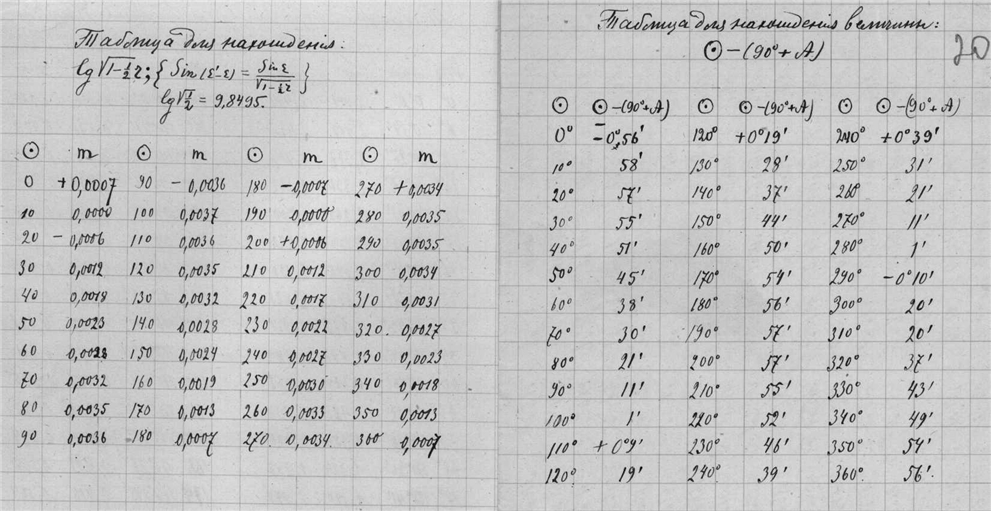 Таблица для нахождения:
lg √1-½r; { Sin (ε'-ε) = Sin ε / √1-½r }
lg √½ = 9,8495.
☉ m ☉ m ☉ m ☉ m
0 +0,0007 90 -0,0036 180 -0,0007 270 +0,0034
10 0,0000 100 0,0037 190 0,0000 280 0,0035
20 -0,0006 110 0,0036 200 +0,0006 290 0,0035
30 0,0012 120 0,0035 210 0,0012 300 0,0034
40 0,0018 130 0,0032 220 0,0017 310 0,0031
50 0,0023 140 0,0028 230 0,0022 320. 0,0027
60 0,0028 150 0,0024 240 0,0027 330 0,0023
70 0,0032 160 0,0019 250 0,0030 340 0,0018
80 0,0035 170 0,0013 260 0,0033 350 0,0013
90 0,0036 180 0,0007 270. 0,0034 360 0,0007
Таблица для нахождения величины:
☉-(90°+A)
20
☉ ☉-(90°+A) ☉ ☉-(90°+A) ☉ ☉-(90°+A)
0° -0°56' 120° +0°19' 240° +0°39'
10° 58' 130° 28' 250° 31'
20° 57' 140° 37' 260 21'
30° 55' 150° 44' 270° 11'
40° 51' 160° 50' 280° 1'
50° 45' 170° 54' 290° -0°10'
60° 38' 180° 56' 300° 20'
70° 30' 190° 57' 310° 20'
80° 21' 200° 57' 320° 37'
90° 11' 210° 55' 330° 43'
100° 1' 220° 52' 340° 49'
110° +0°9' 230° 46' 350° 54'
120° 19' 240° 39' 360° 56'.